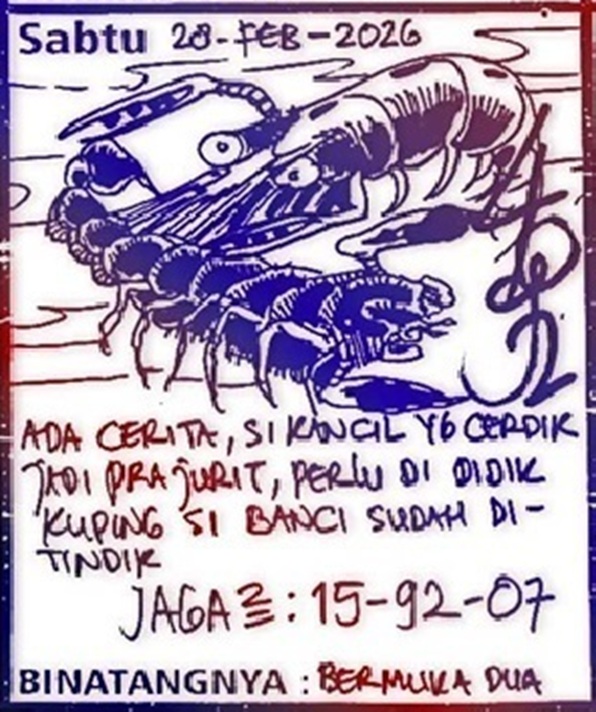 Sabtu 28-FEB-2026
ADA CERITA, SI KANCIL YG CERDIK
JADI PRAJURIT, PERLU DI DIDIK
KUPING SI BANCI SUDAH DI-
TINDIK
JAGA2: 15-92-07
BINATANGNYA : BERMUKA DUA